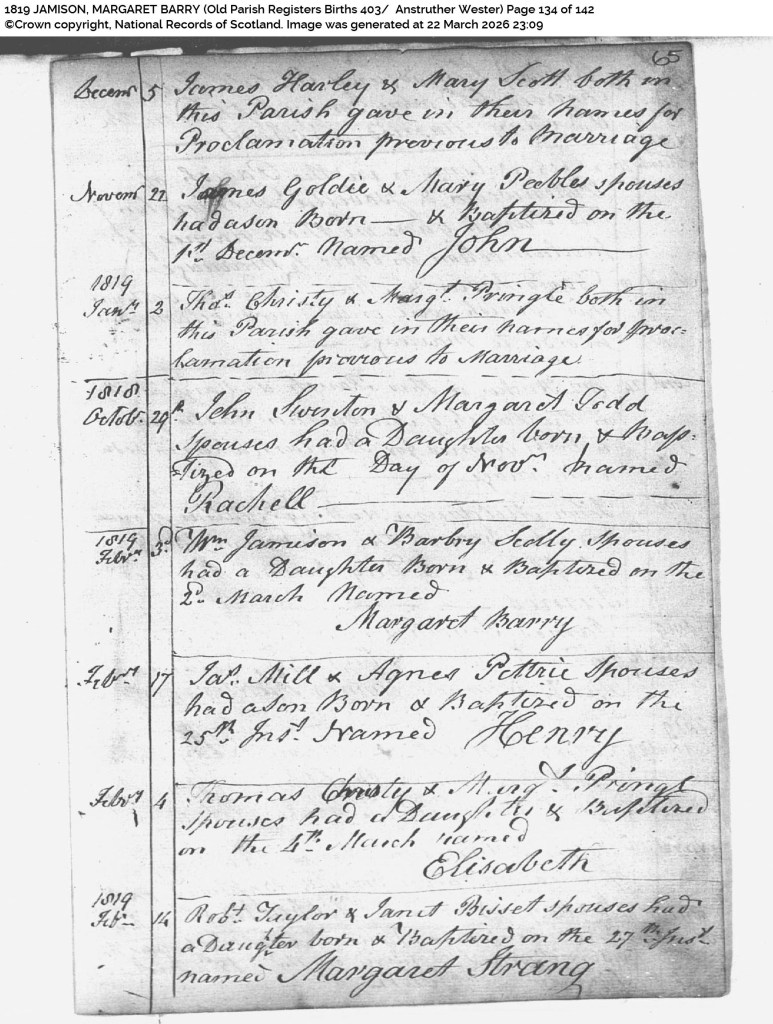 1819 JAMISON, MARGARET BARRY (Old Parish Registers Births 403/ Anstruther Wester) Page 134 of 142
©Crown copyright, National Records of Scotland. Image was generated at 22 March 2026 23:09
65
Decemr 5 James Harley & Mary Scott both in
this Parish gave in their names for
Proclamation previous to Marriage
Novemr 22 James Goldie & Mary Peebles spouses
had a son Born — & Baptized on the
1st Decemr. Named John
1819
Janry 2 Thos. Christy & Margt. Pringle both in
this Parish gave in their names for proc=
lamation previous to Marriage
1818
Octobr. 29th John Swinton & Margaret Todd
Spouses had a Daughter born, & Bap=
=tized on the Day of Novr. named
Rachell
1819
Febry 3d Wm Jamison & Barbry Scolly Spouses
had a Daughter Born & Baptized on the
2d March Named
Margaret Barry
Febry 17 Jas. Mill & Agnes Pettrie Spouses
had a son Born & Baptized on the
25th Inst. Named Henry
Febry 4 Thomas Christy & Margt. Pringl
spouses had a Daughter & Baptized
on the 4th March named
Elisabeth
1819
Feb 14 Robt. Taylor & Janet Bisset spouses had
a Daugter born & Baptized on the 27th Inst
named Margaret Strang